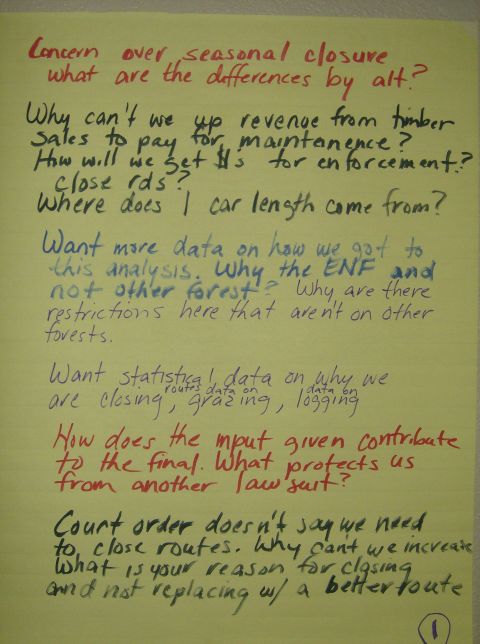 Concern over seasonal closure
what are the differences by alt?
Why can't we up revenue from timber
sales to pay for maintanence?
How will we get $'s for enforcement?
close rds?
Where does 1 car length come from?
Want more data on how we got to
this analysis. Why the ENF and
not other forest? Why are there
restrictions here that aren't on other
forests.
Want statistical data on why we
are closing routes, data on grazing, data on logging
How does the input given contribute
to the final. What protects us
from another lawsuit?
Court order doesn't say we need
to close routes. Why can't we increase
What is your reason for closing
and not replacing w/ a better route
1